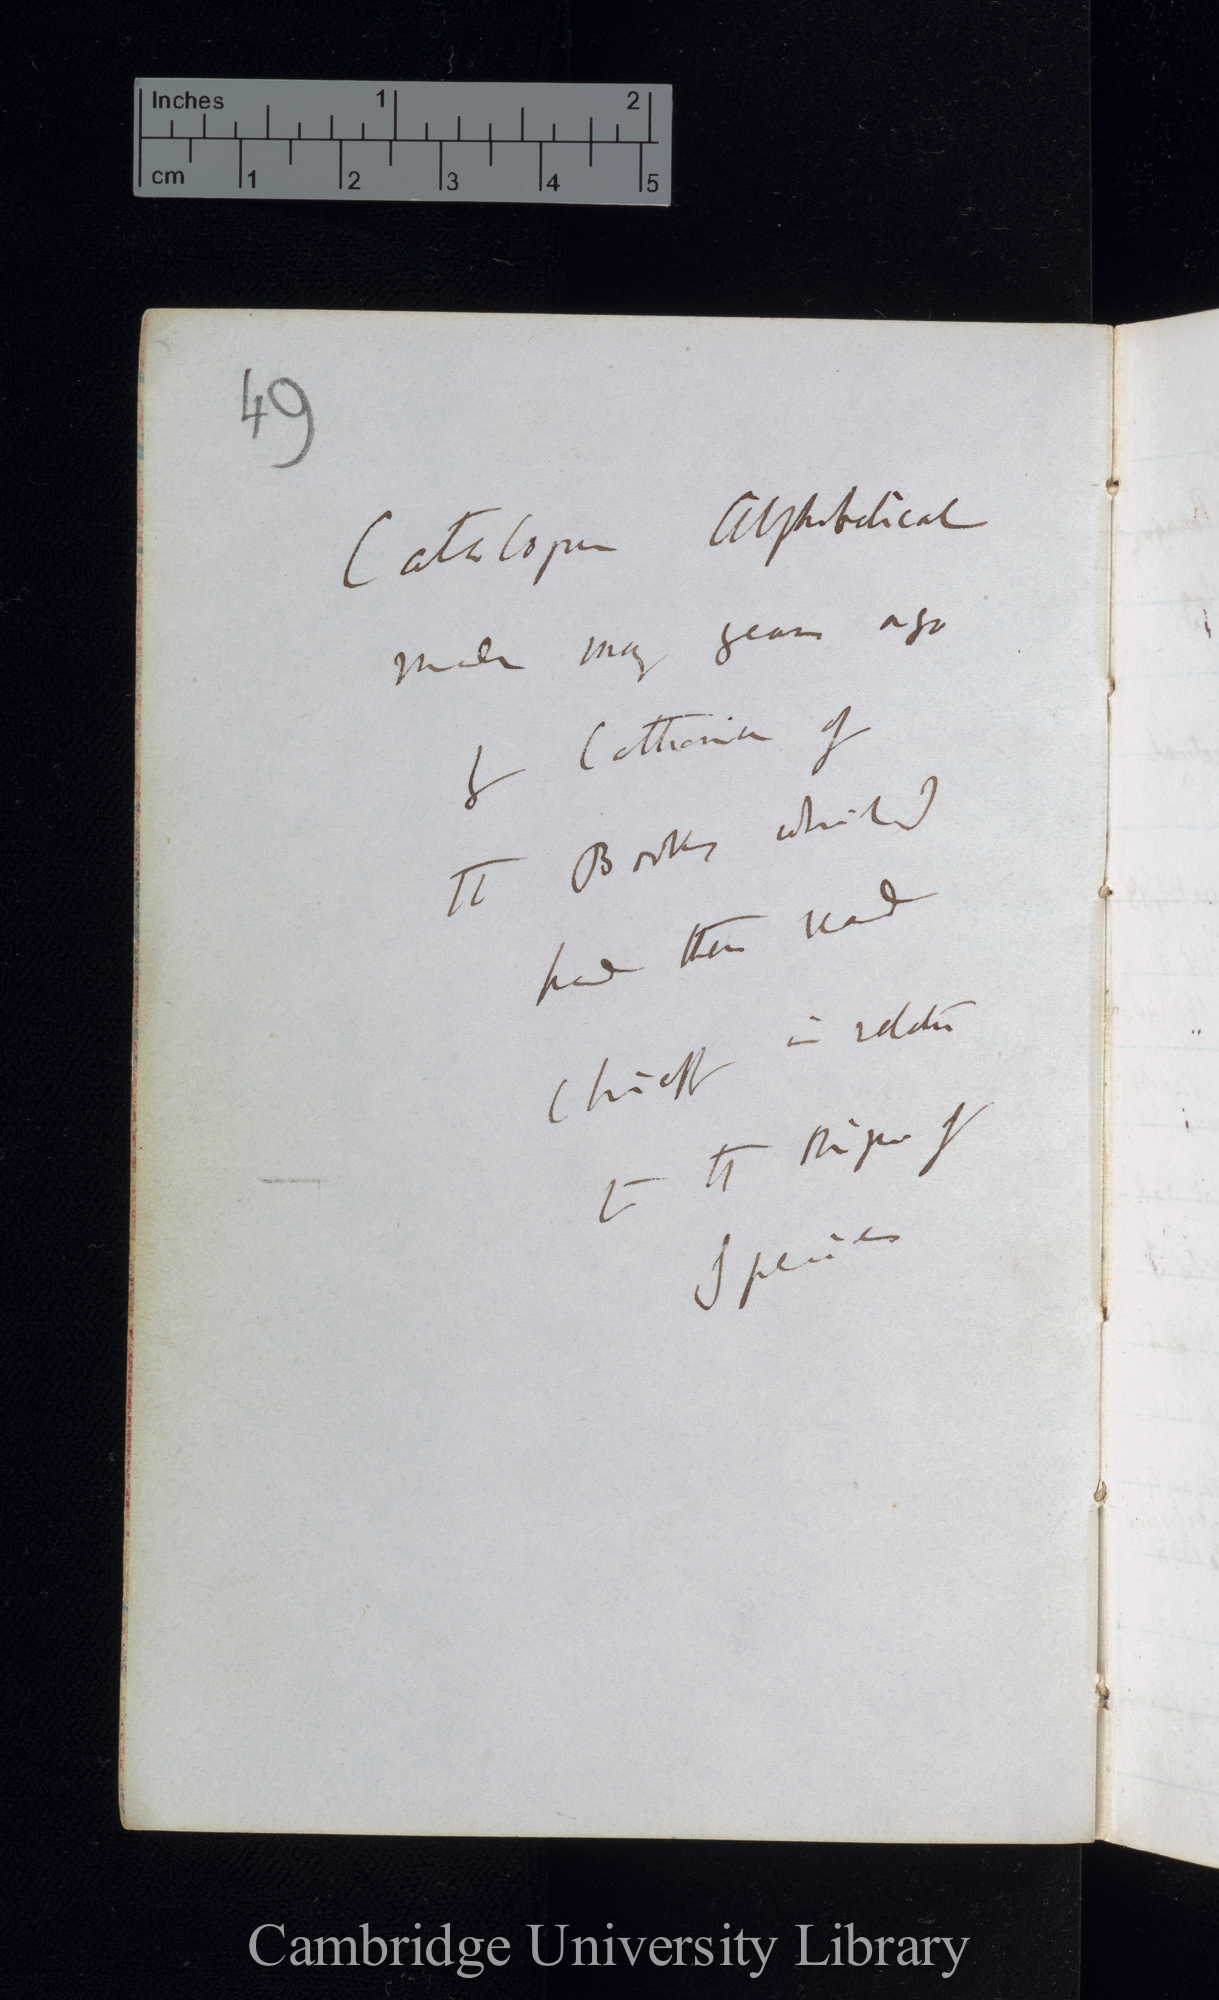 Inches 1 2
cm 1 2 3 4 5
49
Catalogue Alphabetical
made many years ago
by Catherine of
the Books which I
had then read
chiefly in relation
to the Origin of
Species
Cambridge University Library